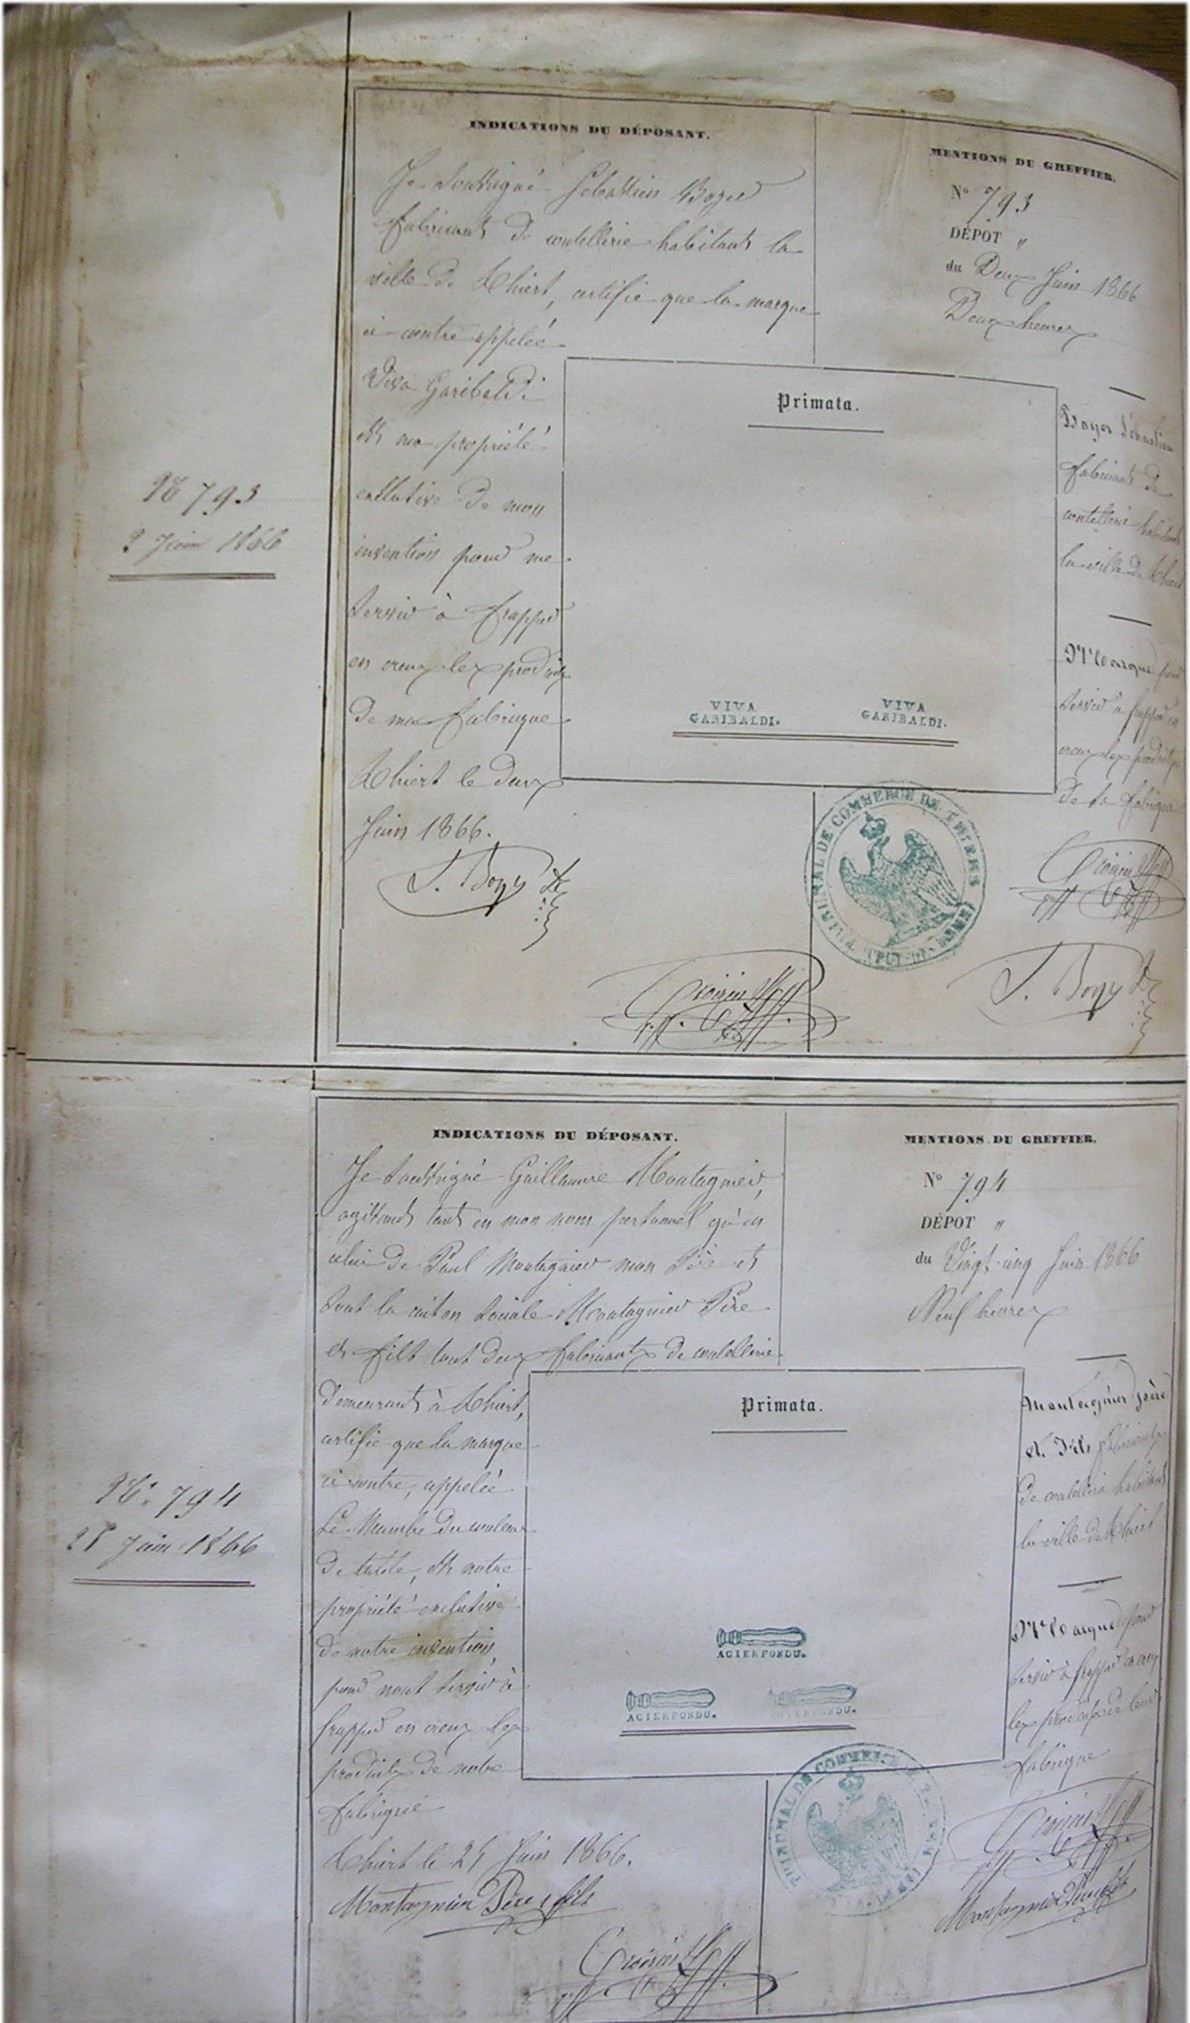 INDICATIONS DU DÉPOSANT.
Je Soussigné Sébastien Boyer
fabricant de coutellerie habitant la
ville de Thiers, certifie que la marque
ci-contre appelée
Viva Garibaldi
est ma propriété
exclusive de mon
invention pour me
servir à frapper
en creux les produits
de ma fabrique
Thiers le deux
Juin 1866.
S. Boyer
MENTIONS DU GREFFIER.
N° 793
DÉPOT "
du Deux Juin 1866
Deux heures
Primata.
VIVA GARIBALDI.
VIVA GARIBALDI.
Boyer Sébastien
fabricant de
coutellerie habitant
la ville de Thiers
Marque pour
servir à frapper en
creux les produits
de sa fabrique
TRIBUNAL DE COMMERCE DE THIERS
S. Boyer
N° 793
2 Juin 1866
INDICATIONS DU DÉPOSANT.
Je Soussigné Guillaume Montagnier,
agissant tant en mon nom personnel qu'en
celui de Paul Montagnier mon Père et
sous la raison sociale Montagnier Père
et fils tous deux fabricants de coutellerie
demeurants à Thiers,
certifie que la marque
ci contre, appelée
Le Manche du couteau
de table, est notre
propriété exclusive
de notre invention,
pour nous servir à
frapper en creux les
produits de notre
fabrique
Thiers le 25 Juin 1866.
Montagnier Père & fils
MENTIONS DU GREFFIER.
N° 794
DÉPOT "
du Vingt-cinq Juin 1866
Neuf heures
Primata.
ACIER FONDU.
ACIER FONDU.
ACIER FONDU.
Montagnier père
et fils fabricants
de coutellerie habitant
la ville de Thiers
Marque pour
servir à frapper en creux
les produits de leur
fabrique
TRIBUNAL DE COMMERCE
Montagnier Père & fils
N° 794
25 Juin 1866